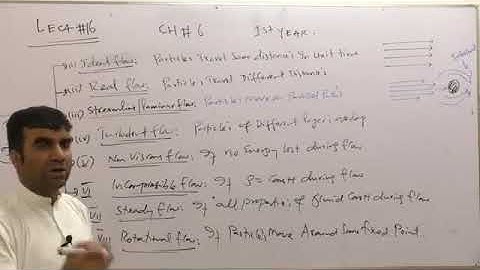 LEC#16 CH#6 1st YEAR.
(i) Ideal flow: Particles Travel Same distance in Unit time
(ii) Real flow: Particles Travel Different Distances
(iii) Streamline/Laminar flow: Particles move on
(iv) Turbulent flow: Particles of Different layers mixing
(V) Non Viscous flow: If no Energy Lost during flow
VI Incompressible flow: If ρ = Const during flow
Steady flow: If all properties of fluid Const during flow
VIII Rotational flow: If Particles Move Around Some fixed Point